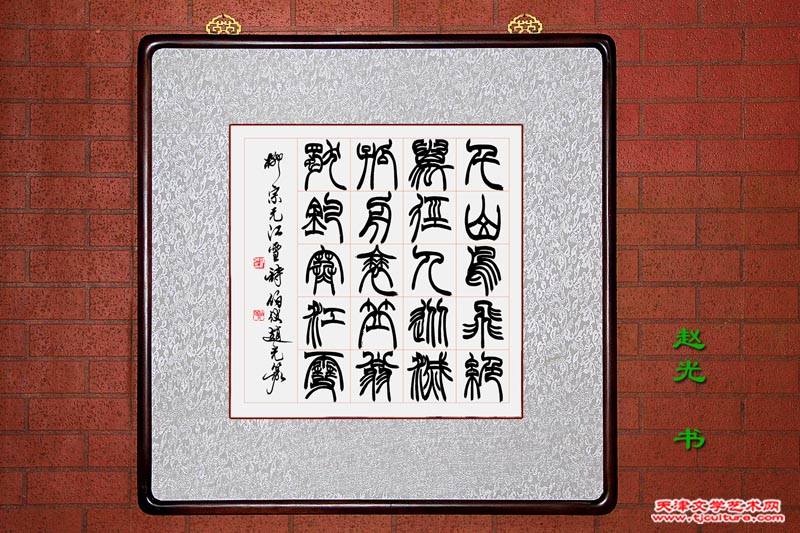 千山鳥飛絕
萬徑人蹤滅
孤舟蓑笠翁
獨釣寒江雪
柳宗元江雪詩 趙光篆
赵光 书
天津文学艺术网
www.tjcultura.com